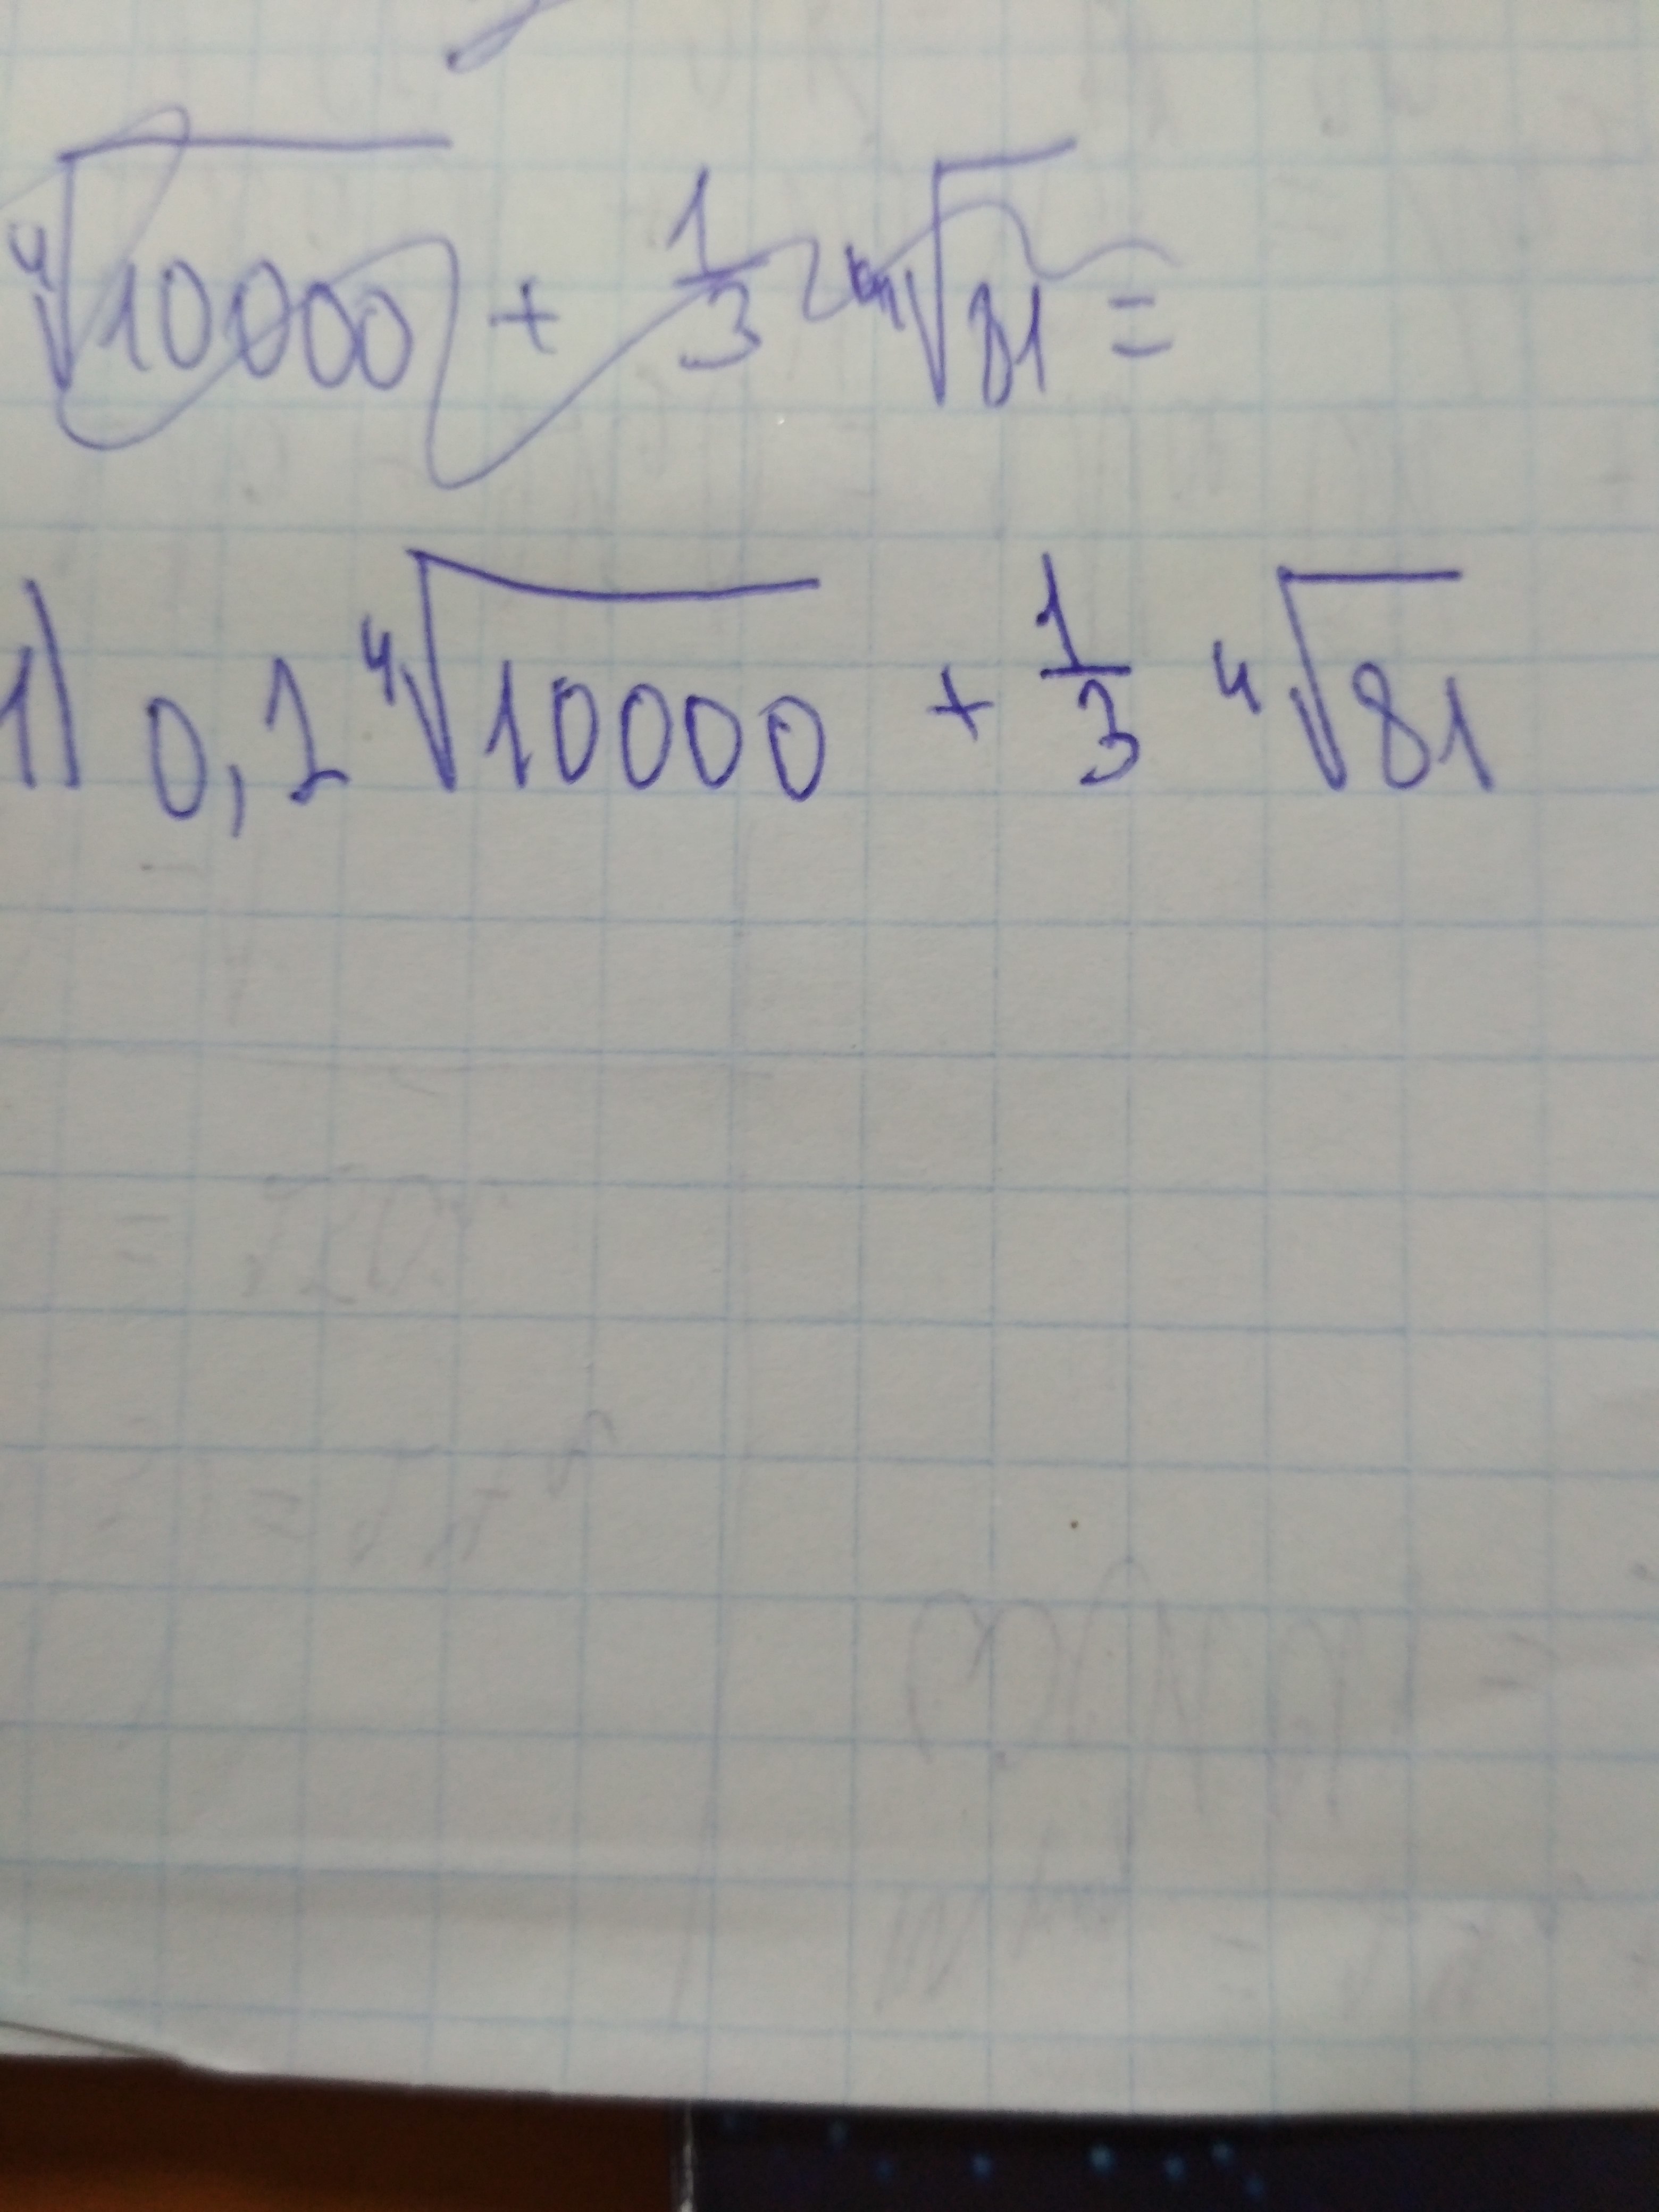 ⁴√10000 + 1/3 ⁴√81 =
1) 0,1 ⁴√10000 + 1/3 ⁴√81